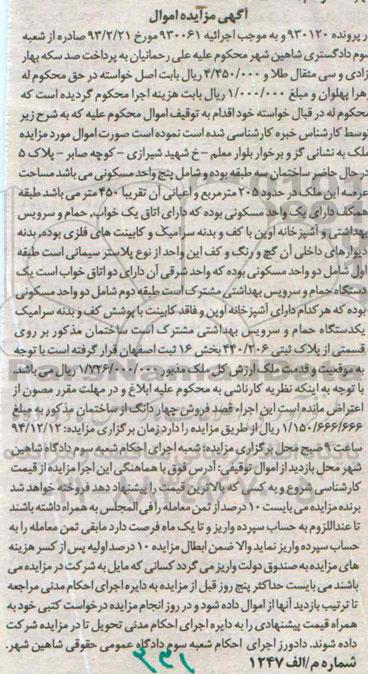 آگهی مزایده اموال
در پرونده ۹۳۰۱۲۰ و به موجب اجرائیه ۹۳۰۰۶۱ مورخ ۹۳/۲/۲۱ صادره از شعبه
سوم دادگستری شاهین شهر محکوم علیه علی رحمانیان به پرداخت صد سکه بهار
آزادی و سی مثقال طلا و ۴/۴۵۰/۰۰۰ ریال بابت اصل خواسته در حق محکوم له
زهرا پهلوان و مبلغ ۱/۰۰۰/۰۰۰ ریال بابت هزینه اجرا محکوم گردیده است که
محکوم له در قبال خواسته خود اقدام به توقیف اموال محکوم علیه که به شرح زیر
توسط کارشناس خبره کارشناسی شده است نموده است صورت اموال مورد مزایده
ملک به نشانی گز و برخوار بلوار معلم – خ شهید شیرازی – کوچه صابر – پلاک ۵
در حال حاضر ساختمان سه طبقه بوده و شامل پنج واحد مسکونی می باشد مساحت
عرصه این ملک در حدود ۲۰۵ مترمربع و اعیانی آن تقریبا ۴۵۰ متر می باشد طبقه
همکف دارای یک واحد مسکونی بوده که دارای اتاق یک خواب، حمام و سرویس
بهداشتی و آشپزخانه اوپن با کف و بدنه سرامیک و کابینت های فلزی بوده، بدنه
دیوارهای داخلی آن گچ و رنگ و کف این واحد از نوع پلاستر سیمانی است طبقه
اول شامل دو واحد مسکونی بوده که واحد شرقی آن دارای دو اتاق خواب است یک
دستگاه حمام و سرویس بهداشتی مشترک است طبقه دوم شامل دو واحد مسکونی
بوده که هر کدام دارای آشپزخانه اوپن و فاقد کابینت با پوشش کف و بدنه سرامیک
یکدستگاه حمام و سرویس بهداشتی مشترک است ساختمان مذکور بر روی
قسمتی از پلاک ثبتی ۴۴۰/۲۰۶ بخش ۱۶ ثبت اصفهان قرار گرفته است با توجه
به موقعیت و قدمت ملک ارزش کل ملک مذبور ۱/۷۲۶/۰۰۰/۰۰۰ ریال می باشد.
با توجه به اینکه نظریه کارناشی به محکوم علیه ابلاغ و در مهلت مقرر مصون از
اعتراض مانده است این اجراء قصد فروش چهار دانگ از ساختمان مذکور به مبلغ
۱/۱۵۰/۶۶۶/۶۶۶ ریال از طریق مزایده را دارد.زمان برگزاری مزایده: ۹۴/۱۲/۱۲
ساعت ۹ صبح محل برگزاری مزایده: شعبه اجرای احکام شعبه سوم دادگاه شاهین
شهر محل بازدید از اموال توقیفی: آدرس فوق با هماهنگی این اجرا مزایده از قیمت
کارشناسی شروع و به کسی که بالاترین قیمت را پیشنهاد دهد فروخته خواهد شد
برنده مزایده می بایست ۱۰ درصد از ثمن معامله را فی المجلس به همراه داشته باشند
تا عنداللزوم به حساب سپرده واریز و تا یک ماه فرصت دارد مابقی ثمن معامله را به
حساب سپرده واریز نماید والا ضمن ابطال مزایده ۱۰ درصد اولیه پس از کسر هزینه
های مزایده به صندوق دولت واریز می گردد کسانی که مایل به شرکت در مزایده می
باشند می بایست حداکثر پنج روز قبل از مزایده به دایره اجرای احکام مدنی مراجعه
تا ترتیب بازدید آنها از اموال داده شود و در روز انجام مزایده درخواست کتبی خود به
همراه قیمت پیشنهادی را به دایره اجرای احکام مدنی تحویل تا در مزایده شرکت
داده شوند. دادورز اجرای احکام شعبه سوم دادگاه عمومی حقوقی شاهین شهر.
شماره م/الف ۱۲۴۷